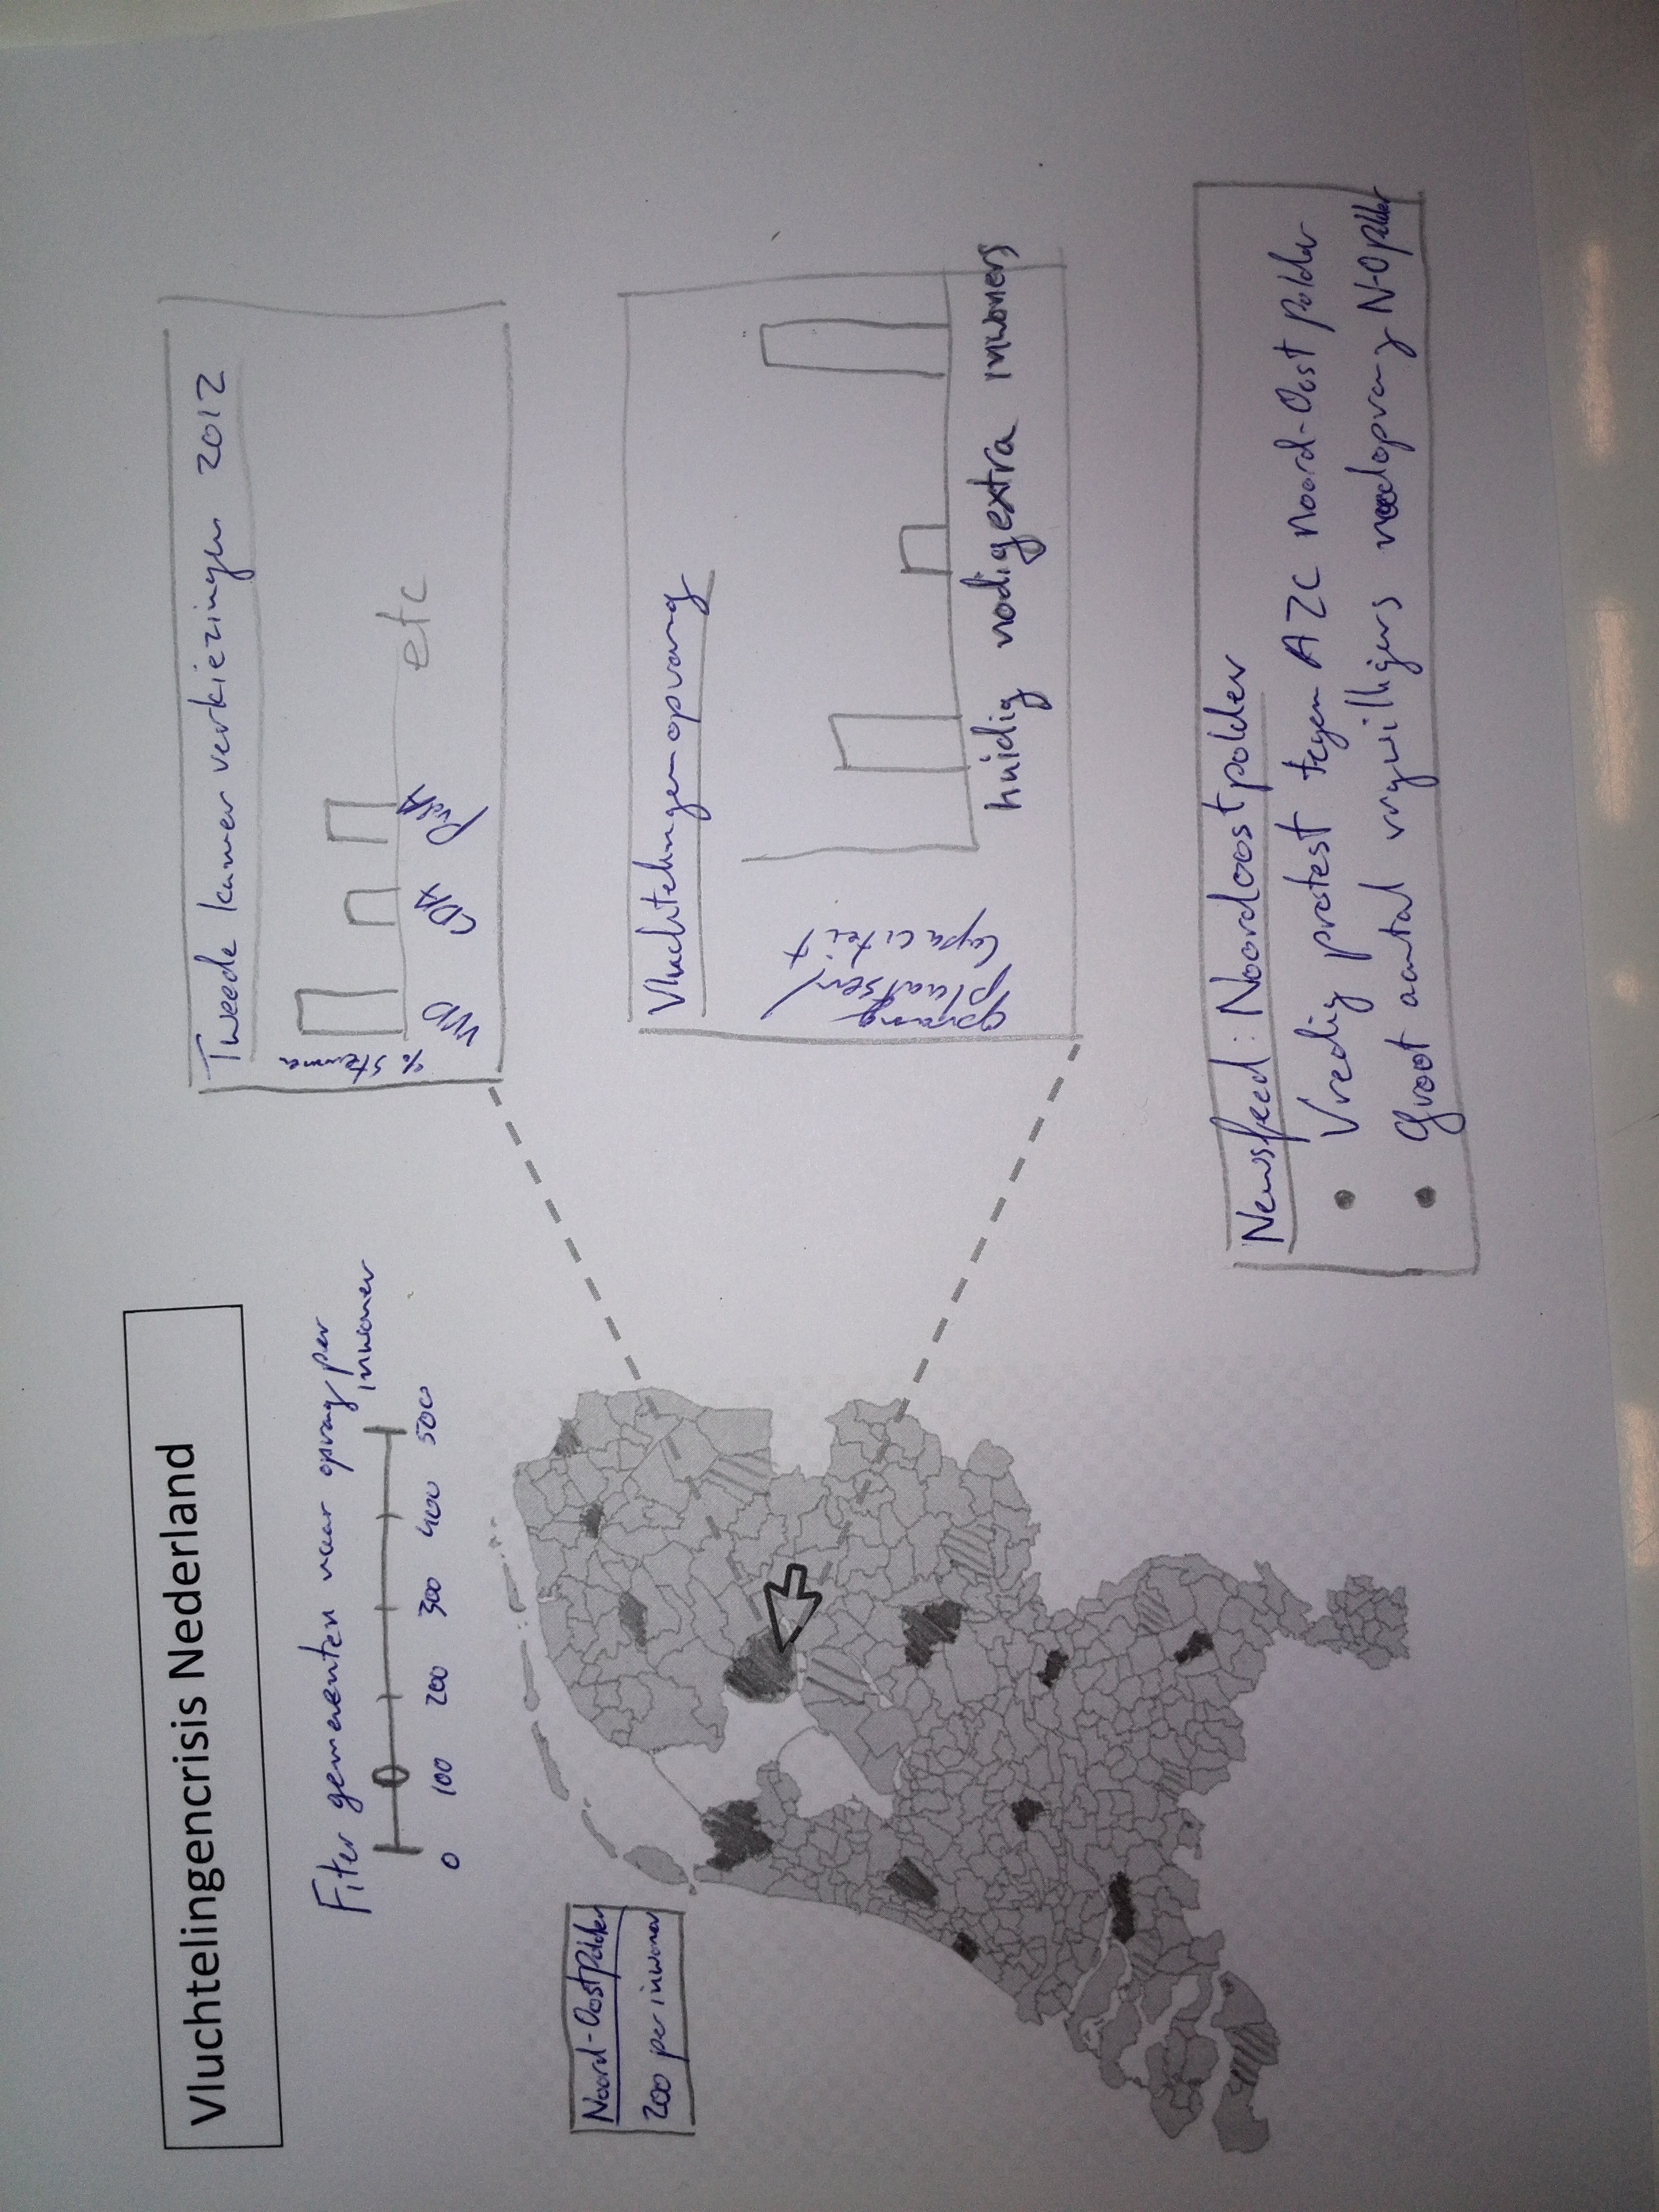 Vluchtelingencrisis Nederland
Fiter gemeenten naar opvag per
inwoner
0 100 200 300 400 500
Noord-Oost Polder
200 per inwoner
Tweede kamer verkiezingen 2012
% stemme
VVD CDA PvdA etc
Vluchtelingenopvang
opvang
plaatsen/
Capaciteit
huidig nodig extra inwoners
Newsfeed: Noordoostpolder
• Vredig protest tegen AZC Noord-Oost polder
• Groot aantal vrijwilligers noodopvang N-O polder